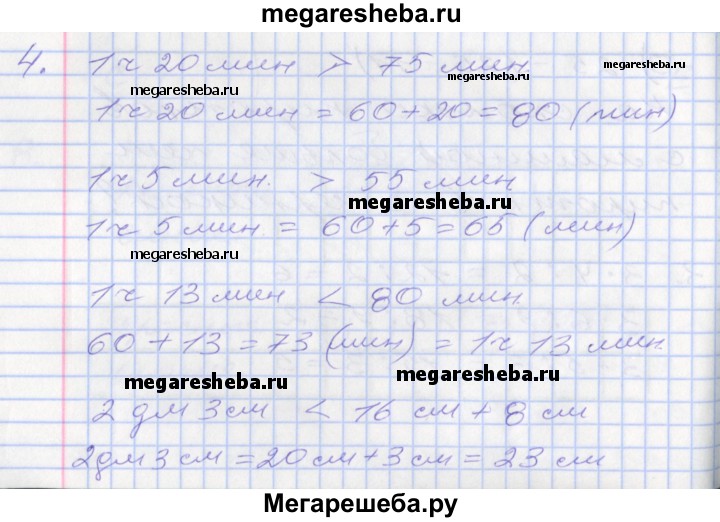 megaresheba.ru
4. 1 ч 20 мин > 75 мин
megaresheba.ru
megaresheba.ru
1 ч 20 мин = 60 + 20 = 80 (мин)
1 ч 5 мин. > 55 мин
megaresheba.ru
1 ч 5 мин = 60 + 5 = 65 (мин)
megaresheba.ru
1 ч 13 мин < 80 мин.
60 + 13 = 73 (мин) = 1 ч 13 мин.
megaresheba.ru
megaresheba.ru
2 дм 3 см < 16 см + 8 см
2 дм 3 см = 20 см + 3 см = 23 см
Мегарешеба.ру